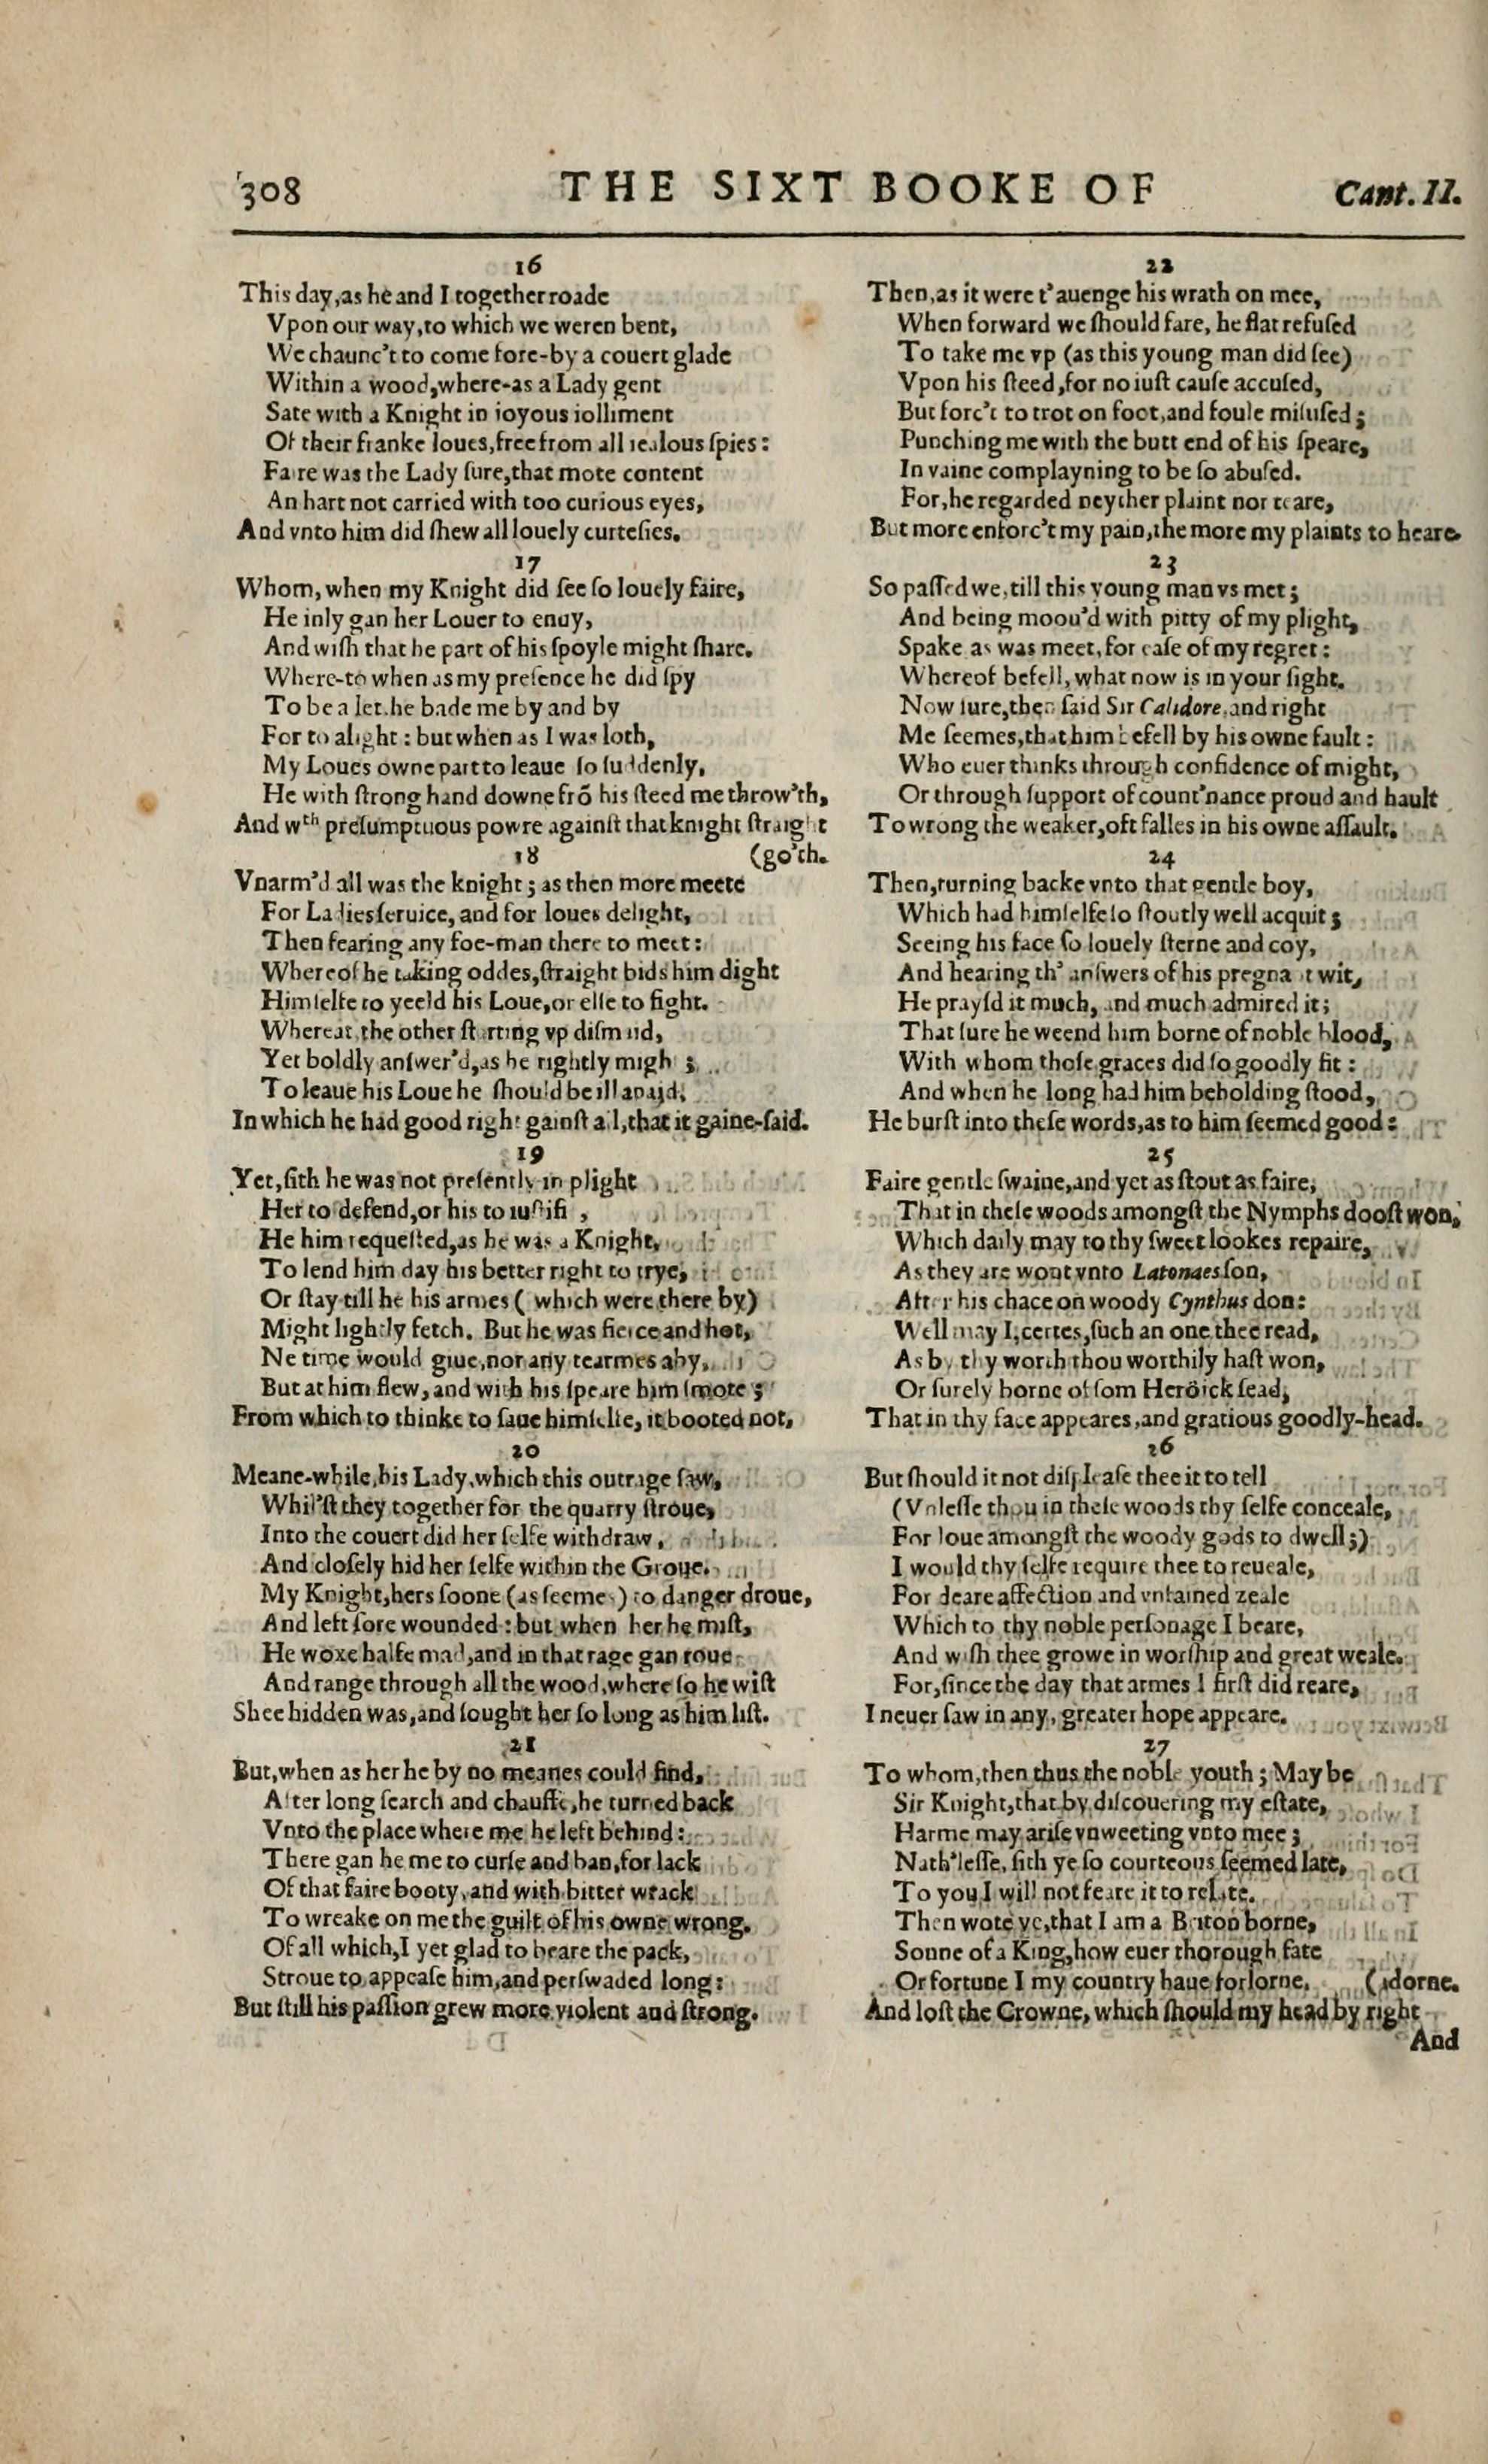 308 THE SIXT BOOKE OF Cant. II.
16
This day, as he and I together roade
Vpon our way, to which we weren bent,
We chaunc't to come fore-by a couert glade
Within a wood, where-as a Lady gent
Sate with a Knight in ioyous iolliment
Of their franke loues, free from all iealous ſpies:
Faire was the Lady ſure, that mote content
An hart not carried with too curious eyes,
And vnto him did ſhew all louely curteſies.
17
Whom, when my Knight did ſee ſo louely faire,
He inly gan her Louer to enuy,
And wiſh that he part of his ſpoyle might ſhare.
Where-to when as my preſence he did ſpy
To be a let, he bade me by and by
For to alight: but when as I was loth,
My Loues owne part to leaue ſo ſuddenly,
He with ſtrong hand downe frõ his ſteed me throw'th,
And wth preſumptuous powre againſt that knight ſtraight
(go'th.
18
Vnarm'd all was the knight; as then more meete
For Ladies ſeruice, and for loues delight,
Then fearing any foe-man there to meet:
Whereof he taking oddes, ſtraight bids him dight
Himſelfe to yeeld his Loue, or elſe to fight.
Whereat the other ſtarting vp diſmaid,
Yet boldly anſwer'd, as he rightly might;
To leaue his Loue he ſhould be ill apaid,
In which he had good right gainſt all, that it gaine-ſaid.
19
Yet, ſith he was not preſently in plight
Her to defend, or his to iuſtifi,
He him requeſted, as he was a Knight,
To lend him day his better right to trye,
Or ſtay till he his armes (which were there by)
Might lightly fetch. But he was fierce and hot,
Ne time would giue, nor any tearmes aby,
But at him flew, and with his ſpeare him ſmote;
From which to thinke to ſaue himſelfe, it booted not,
20
Meane-while, his Lady, which this outrage ſaw,
Whil'ſt they together for the quarry ſtroue,
Into the couert did her ſelfe withdraw,
And cloſely hid her ſelfe within the Groue.
My Knight, hers ſoone (as ſeemes) to danger droue,
And left ſore wounded: but when her he miſt,
He woxe halfe mad, and in that rage gan roue
And range through all the wood, where ſo he wiſt
Shee hidden was, and ſought her ſo long as him liſt.
21
But, when as her he by no meanes could find,
After long ſearch and chauffe, he turned back
Vnto the place where me he left behind:
There gan he me to curſe and ban, for lack
Of that faire booty, and with bitter wrack
To wreake on me the guilt of his owne wrong.
Of all which, I yet glad to beare the pack,
Stroue to appeaſe him, and perſwaded long:
But ſtill his paſſion grew more violent and ſtrong.
22
Then, as it were t'auenge his wrath on mee,
When forward we ſhould fare, he flat refuſed
To take me vp (as this young man did ſee)
Vpon his ſteed, for no iuſt cauſe accuſed,
But forc't to trot on foot, and foule miſuſed;
Punching me with the butt end of his ſpeare,
In vaine complayning to be ſo abuſed.
For, he regarded neyther plaint nor teare,
But more enforc't my pain, the more my plaints to heare.
23
So paſſed we, till this young man vs met;
And being moou'd with pitty of my plight,
Spake as was meet, for eaſe of my regret:
Whereof befell, what now is in your ſight.
Now ſure, then ſaid Sir Calidore, and right
Me ſeemes, that him befell by his owne fault:
Who euer thinks through confidence of might,
Or through ſupport of count'nance proud and hault
To wrong the weaker, oft falles in his owne aſſault.
24
Then, turning backe vnto that gentle boy,
Which had himſelfe ſo ſtoutly well acquit;
Seeing his face ſo louely ſterne and coy,
And hearing th' anſwers of his pregnant wit,
He prayſd it much, and much admired it;
That ſure he weend him borne of noble blood,
With whom thoſe graces did ſo goodly fit:
And when he long had him beholding ſtood,
He burſt into theſe words, as to him ſeemed good:
25
Faire gentle ſwaine, and yet as ſtout as faire,
That in theſe woods amongſt the Nymphs dooſt won,
Which daily may to thy ſweet lookes repaire,
As they are wont vnto Latonaes ſon,
After his chace on woody Cynthus don:
Well may I, certes, ſuch an one thee read,
As by thy worth thou worthily haſt won,
Or ſurely borne of ſom Heröick ſead,
That in thy face appeares, and gratious goodly-head.
26
But ſhould it not diſpleaſe thee it to tell
(Vnleſſe thou in theſe woods thy ſelfe conceale,
For loue amongſt the woody gods to dwell;)
I would thy ſelfe require thee to reueale,
For deare affection and vnfained zeale
Which to thy noble perſonage I beare,
And wiſh thee growe in worſhip and great weale.
For, ſince the day that armes I firſt did reare,
I neuer ſaw in any, greater hope appeare.
27
To whom, then thus the noble youth; May be
Sir Knight, that by diſcouering my eſtate,
Harme may ariſe vnweeting vnto mee;
Nath'leſſe, ſith ye ſo courteous ſeemed late,
To you I will not feare it to relate.
Then wote ye, that I am a Briton borne,
Sonne of a King, how euer thorough fate
Or fortune I my country haue forlorne, (adorne.
And loſt the Crowne, which ſhould my head by right
And